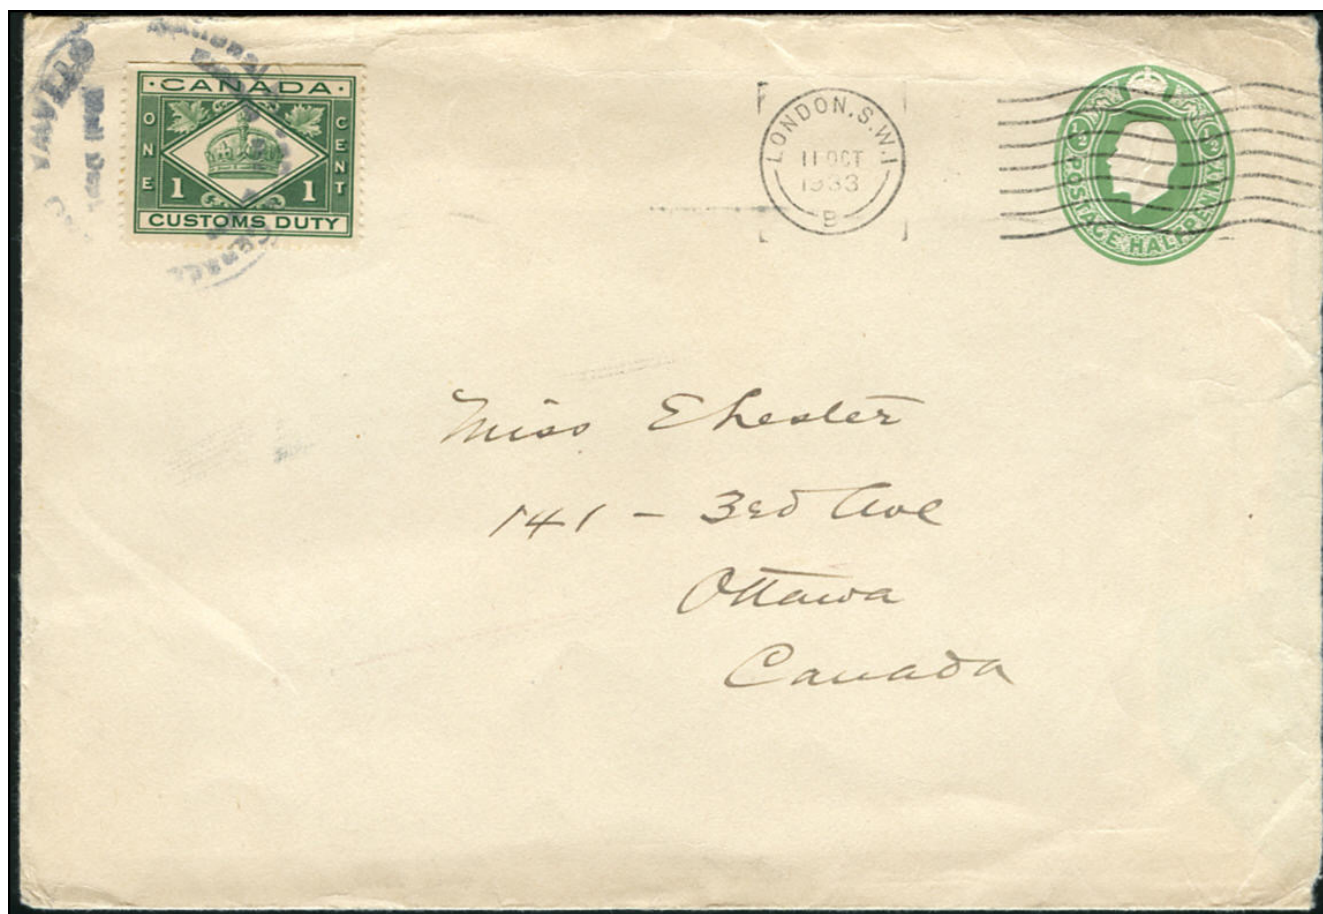 · CANADA ·
ONE CENT
1 1
CUSTOMS DUTY
LONDON.S.W.1
11 OCT
1933
B
½ ½
POSTAGE HALFPENNY
Miss Ehester
141 - 3rd Ave
Ottawa
Canada